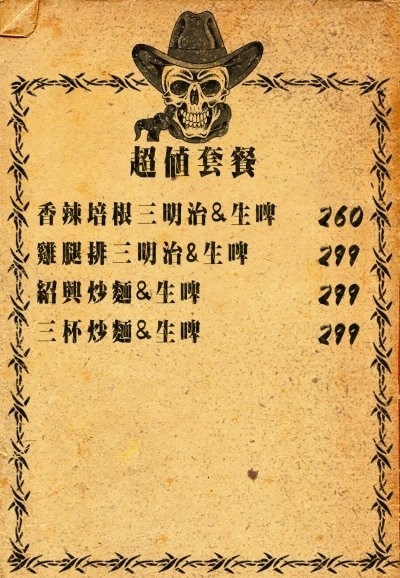 超值套餐
香辣培根三明治&生啤 260
雞腿排三明治&生啤 299
紹興炒麵&生啤 299
三杯炒麵&生啤 299